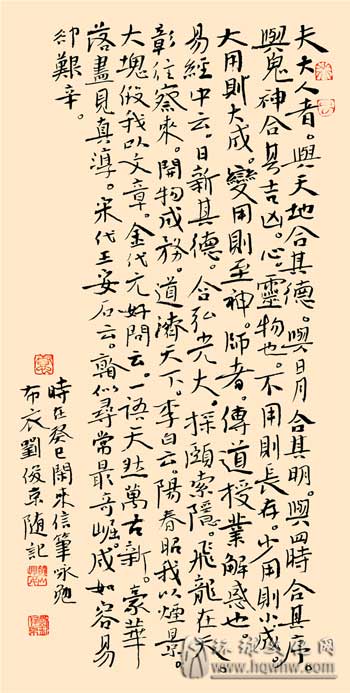 夫大人者。與天地合其德。與日月合其明。與四時合其序。
與鬼神合其吉凶。心靈物也。不用則長存。小用則小成。
大用則大成。變用則至神。師者。傳道授業解惑也。
易經中云。日新其德。合弘光大。探頤索隱。飛龍在天。
彰往察來。開物成務。道濟天下。李白云。陽春昭我以煙景。
大塊假我以文章。金代元好問云。一語天然萬古新。豪華
落盡見真淳。宋代王安石云。看似尋常最奇崛。成如容易
卻艱辛。
時在癸巳閑來信筆詠勉
布衣劉俊京隨記
www.hqwhw.com